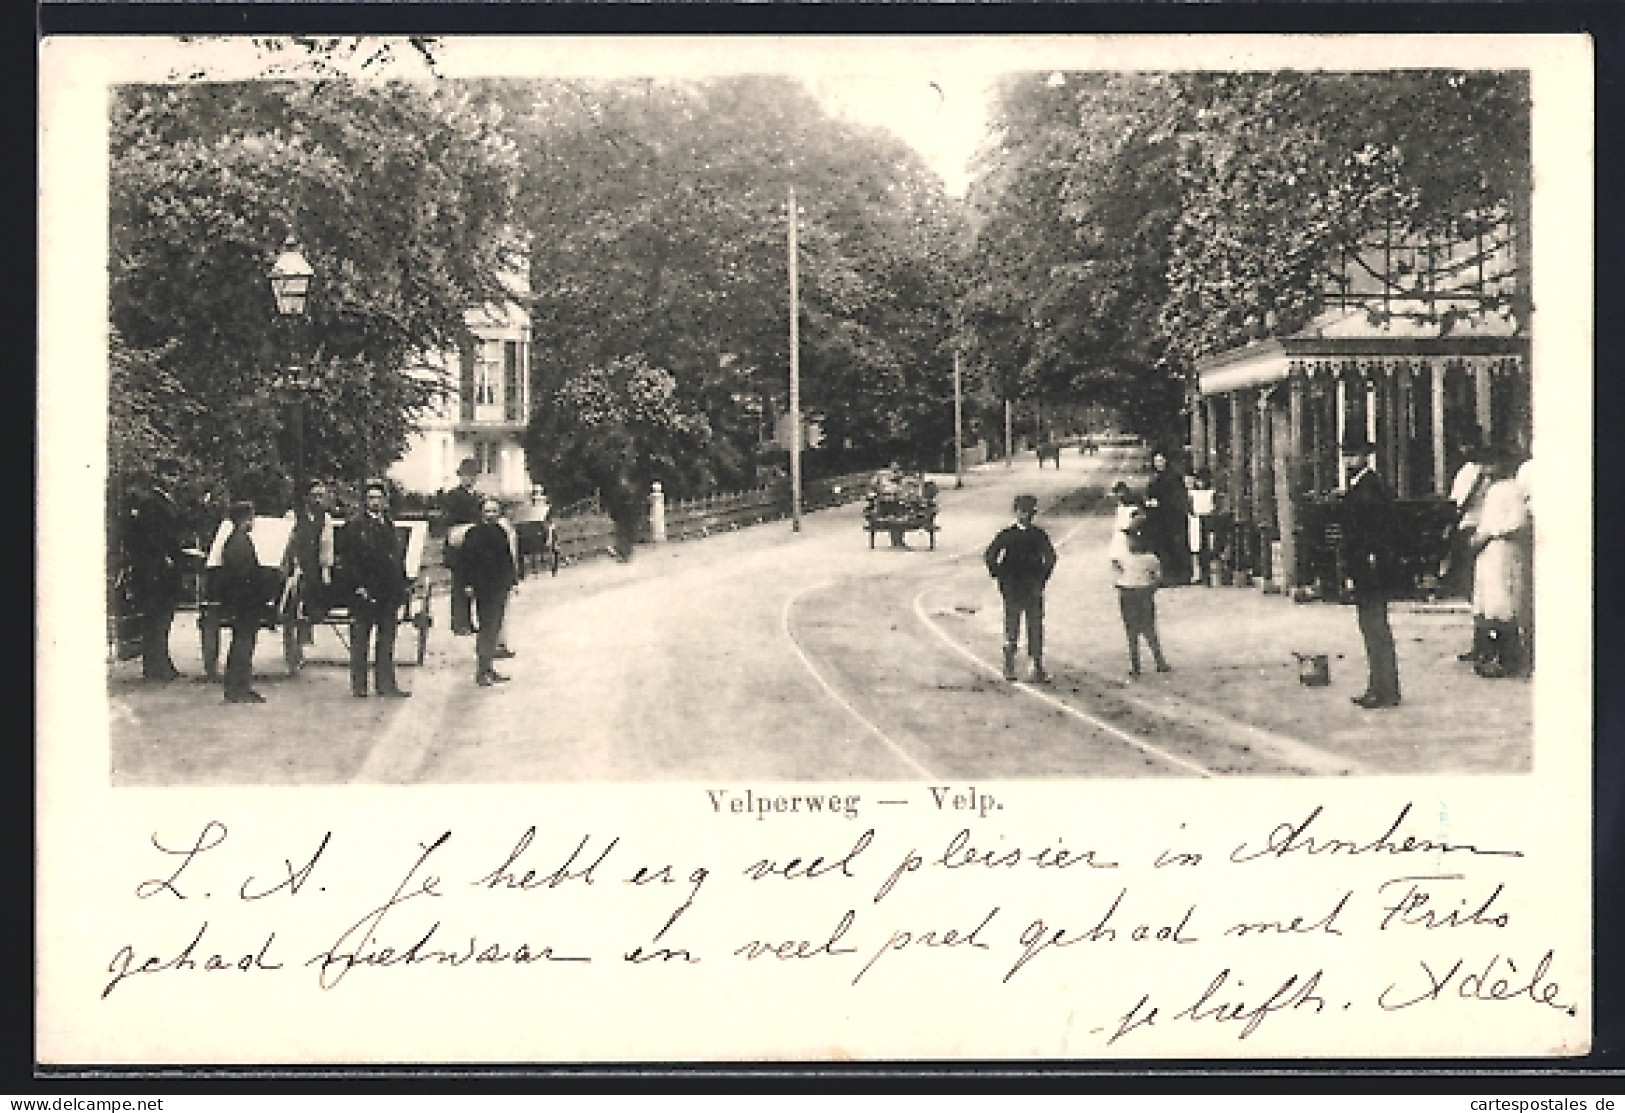 Velperweg — Velp.
L. A. Je hebt erg veel pleisier in Arnhem
gehad nietwaar en veel pret gehad met Frits
je liefh. Adèle.
www.delcampe.net
cartespostales de